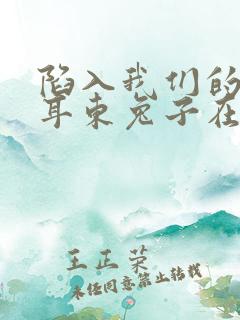 陷入我们的
耳东兔子在
王正荣
未经同意禁止转载